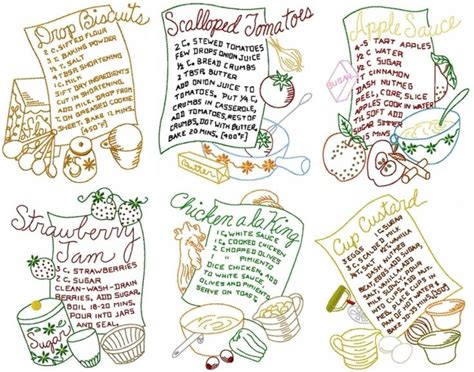 Drop Biscuits
2 C. SIFTED FLOUR
3 t. BAKING POWDER
1 t. SALT
4 TBSP. SHORTENING
MILK.
SIFT DRY INGREDIENTS
CUT IN SHORTENING.
ADD MILK. DROP FROM
T. ON GREASED COOKIE
SHEET. BAKE 12 MINS.
(450°F)
S
Scalloped Tomatoes
2 C. STEWED TOMATOES
FEW DROPS ONION JUICE
1/2 C. BREAD CRUMBS
2 TBSP. BUTTER
ADD ONION JUICE TO
TOMATOES. PUT 1/4 C.
CRUMBS IN CASSEROLE,
ADD TOMATOES, REST OF
CRUMBS, DOT WITH BUTTER,
BAKE 20 MINS. (400°F)
Butter
Apple Sauce
4-5 TART APPLES
1/2 C WATER
1/2 C SUGAR
t. CINNAMON
DASH NUTMEG
PEEL, CORE, SLICE
APPLES COOK IN WATER
TIL SOFT ADD
SUGAR SIMMER
MINS
SUGAR
Strawberry
Jam
3 C. STRAWBERRIES
2 C. SUGAR
CLEAN-WASH-DRAIN
BERRIES, ADD SUGAR.
BOIL 18-20 MINS.
POUR INTO JARS
AND SEAL.
Sugar
Chicken a la King
1 C. WHITE SAUCE
1 C. COOKED CHICKEN
2 CHOPPED OLIVES
1 " PIMIENTO
DICE CHICKEN, ADD
TO WHITE SAUCE,
OLIVES AND PIMIENTO
SERVE ON TOAST
Cup Custard
3 EGGS 1/4 C. SUGAR
3 C. SCALDED MILK
SALT VANILLA
DASH NUTMEG
BEAT EGGS, ADD SUGAR,
SALT, VANILLA, ADD
MILK SLOWLY, POUR
IN CUPS,
PLACE CUPS IN
PAN OF HOT WATER
BAKE 30-35 MINS